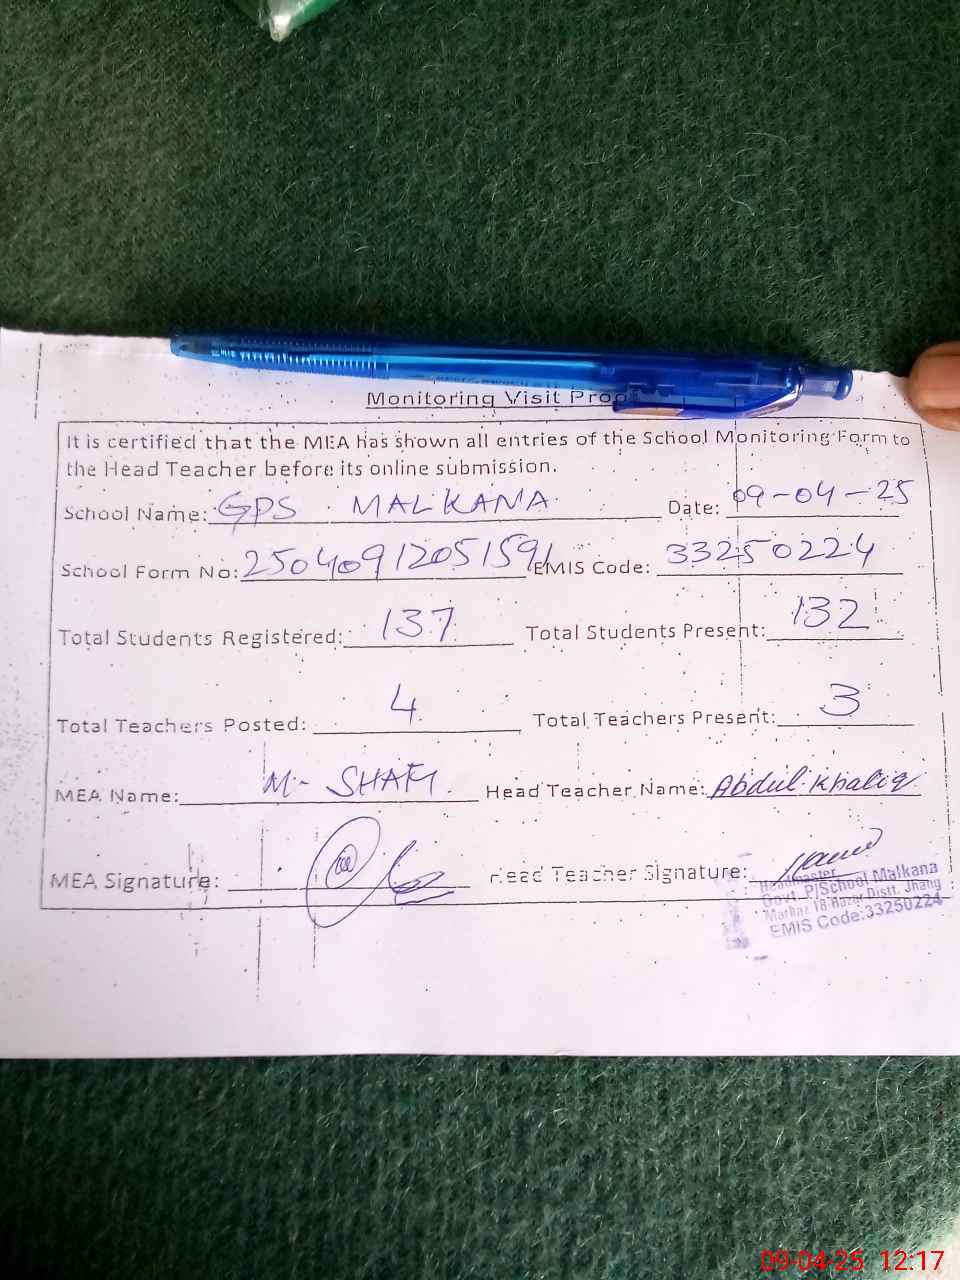 Monitoring Visit Proof
It is certified that the MEA has shown all entries of the School Monitoring Form to
the Head Teacher before its online submission.
School Name: GPS MALKANA Date: 09-04-25
School Form No: 2504091205159 EMIS Code: 33250224
Total Students Registered: 137 Total Students Present: 132
Total Teachers Posted: 4 Total Teachers Present: 3
MEA Name: M- SHAFI Head Teacher Name: Abdul Khaliq
MEA Signature: Head Teacher Signature:
Headmaster
Govt. P/School Malkana
Markaz 18-Hazari Distt. Jhang
EMIS Code:33250224
09-04-25 12:17